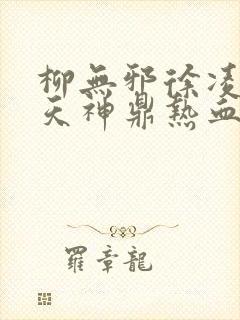 柳無邪徐凌
天神鼎熱血
羅章龍